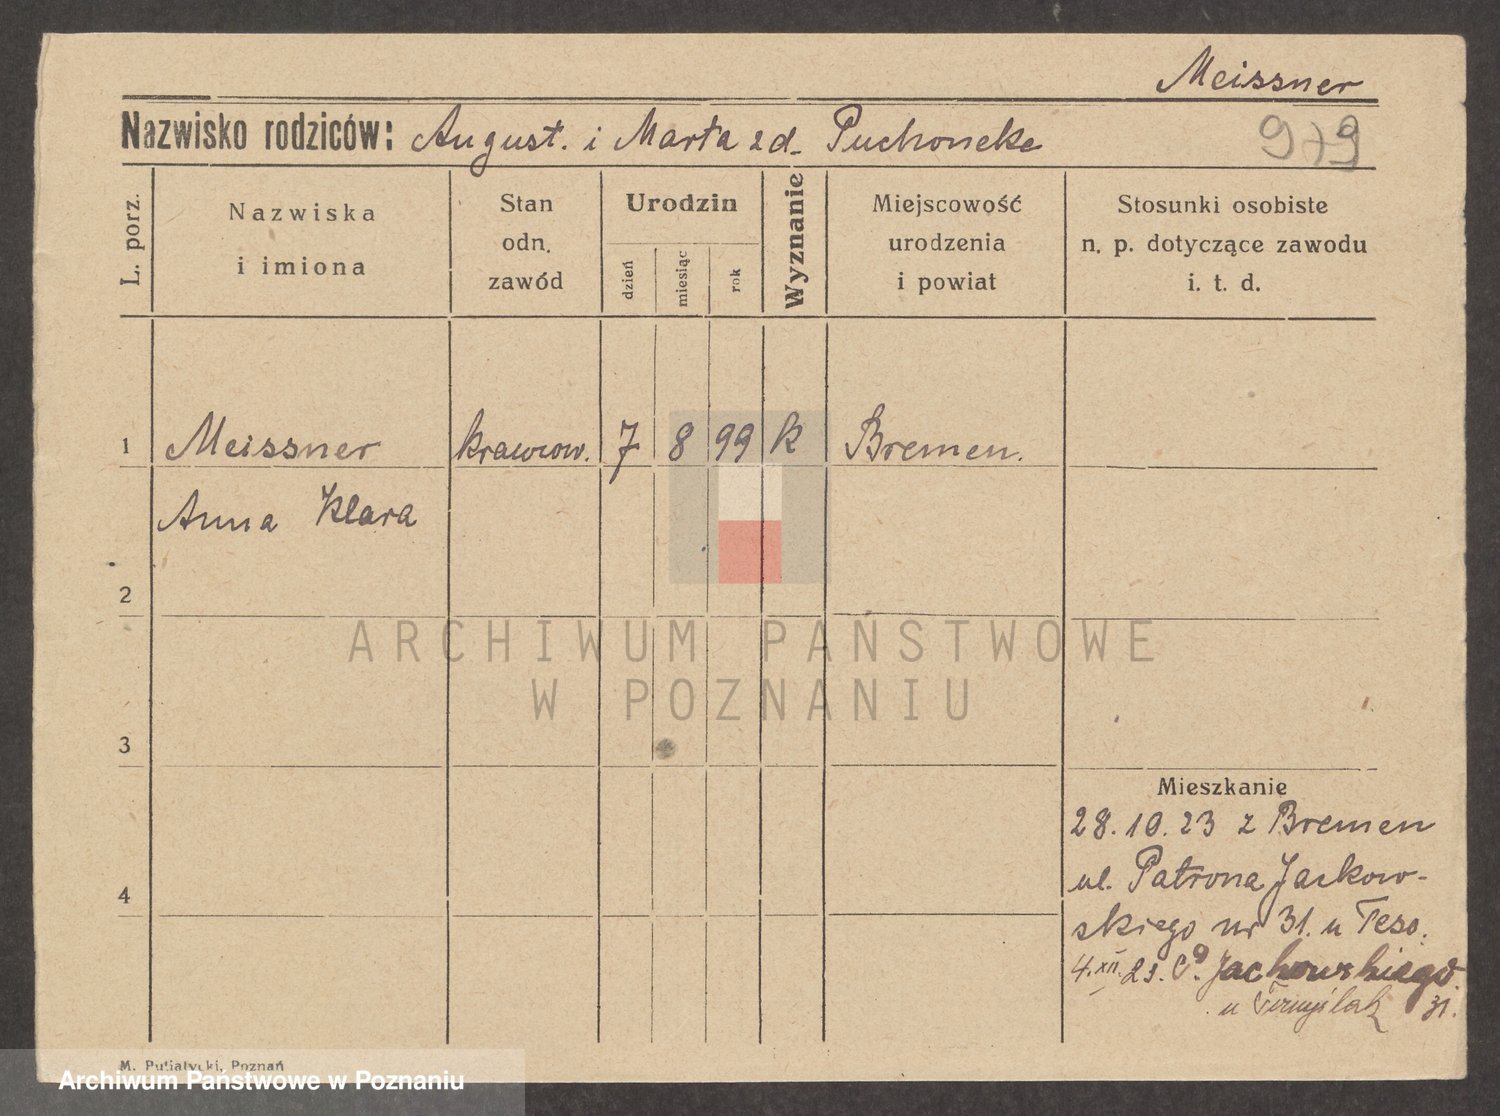 Meissner
Nazwisko rodziców: August. i Marta zd. Puchoncke
979
L. porz.
Nazwiska
i imiona
Stan
odn.
zawód
Urodzin
dzień
miesiąc
rok
Wyznanie
Miejscowość
urodzenia
i powiat
Stosunki osobiste
n. p. dotyczące zawodu
i. t. d.
1 Meissner krawcow. 7 8 99 k Bremen.
Anna Klara
2
ARCHIWUM PAŃSTWOWE
W POZNANIU
3
Mieszkanie
28.10.23 z Bremen
ul. Patrona Jackow-
4
skiego nr 31. u
4.XII.23. Jackowskiego
u 31.
M. Putiatycki, Poznań
Archiwum Państwowe w Poznaniu